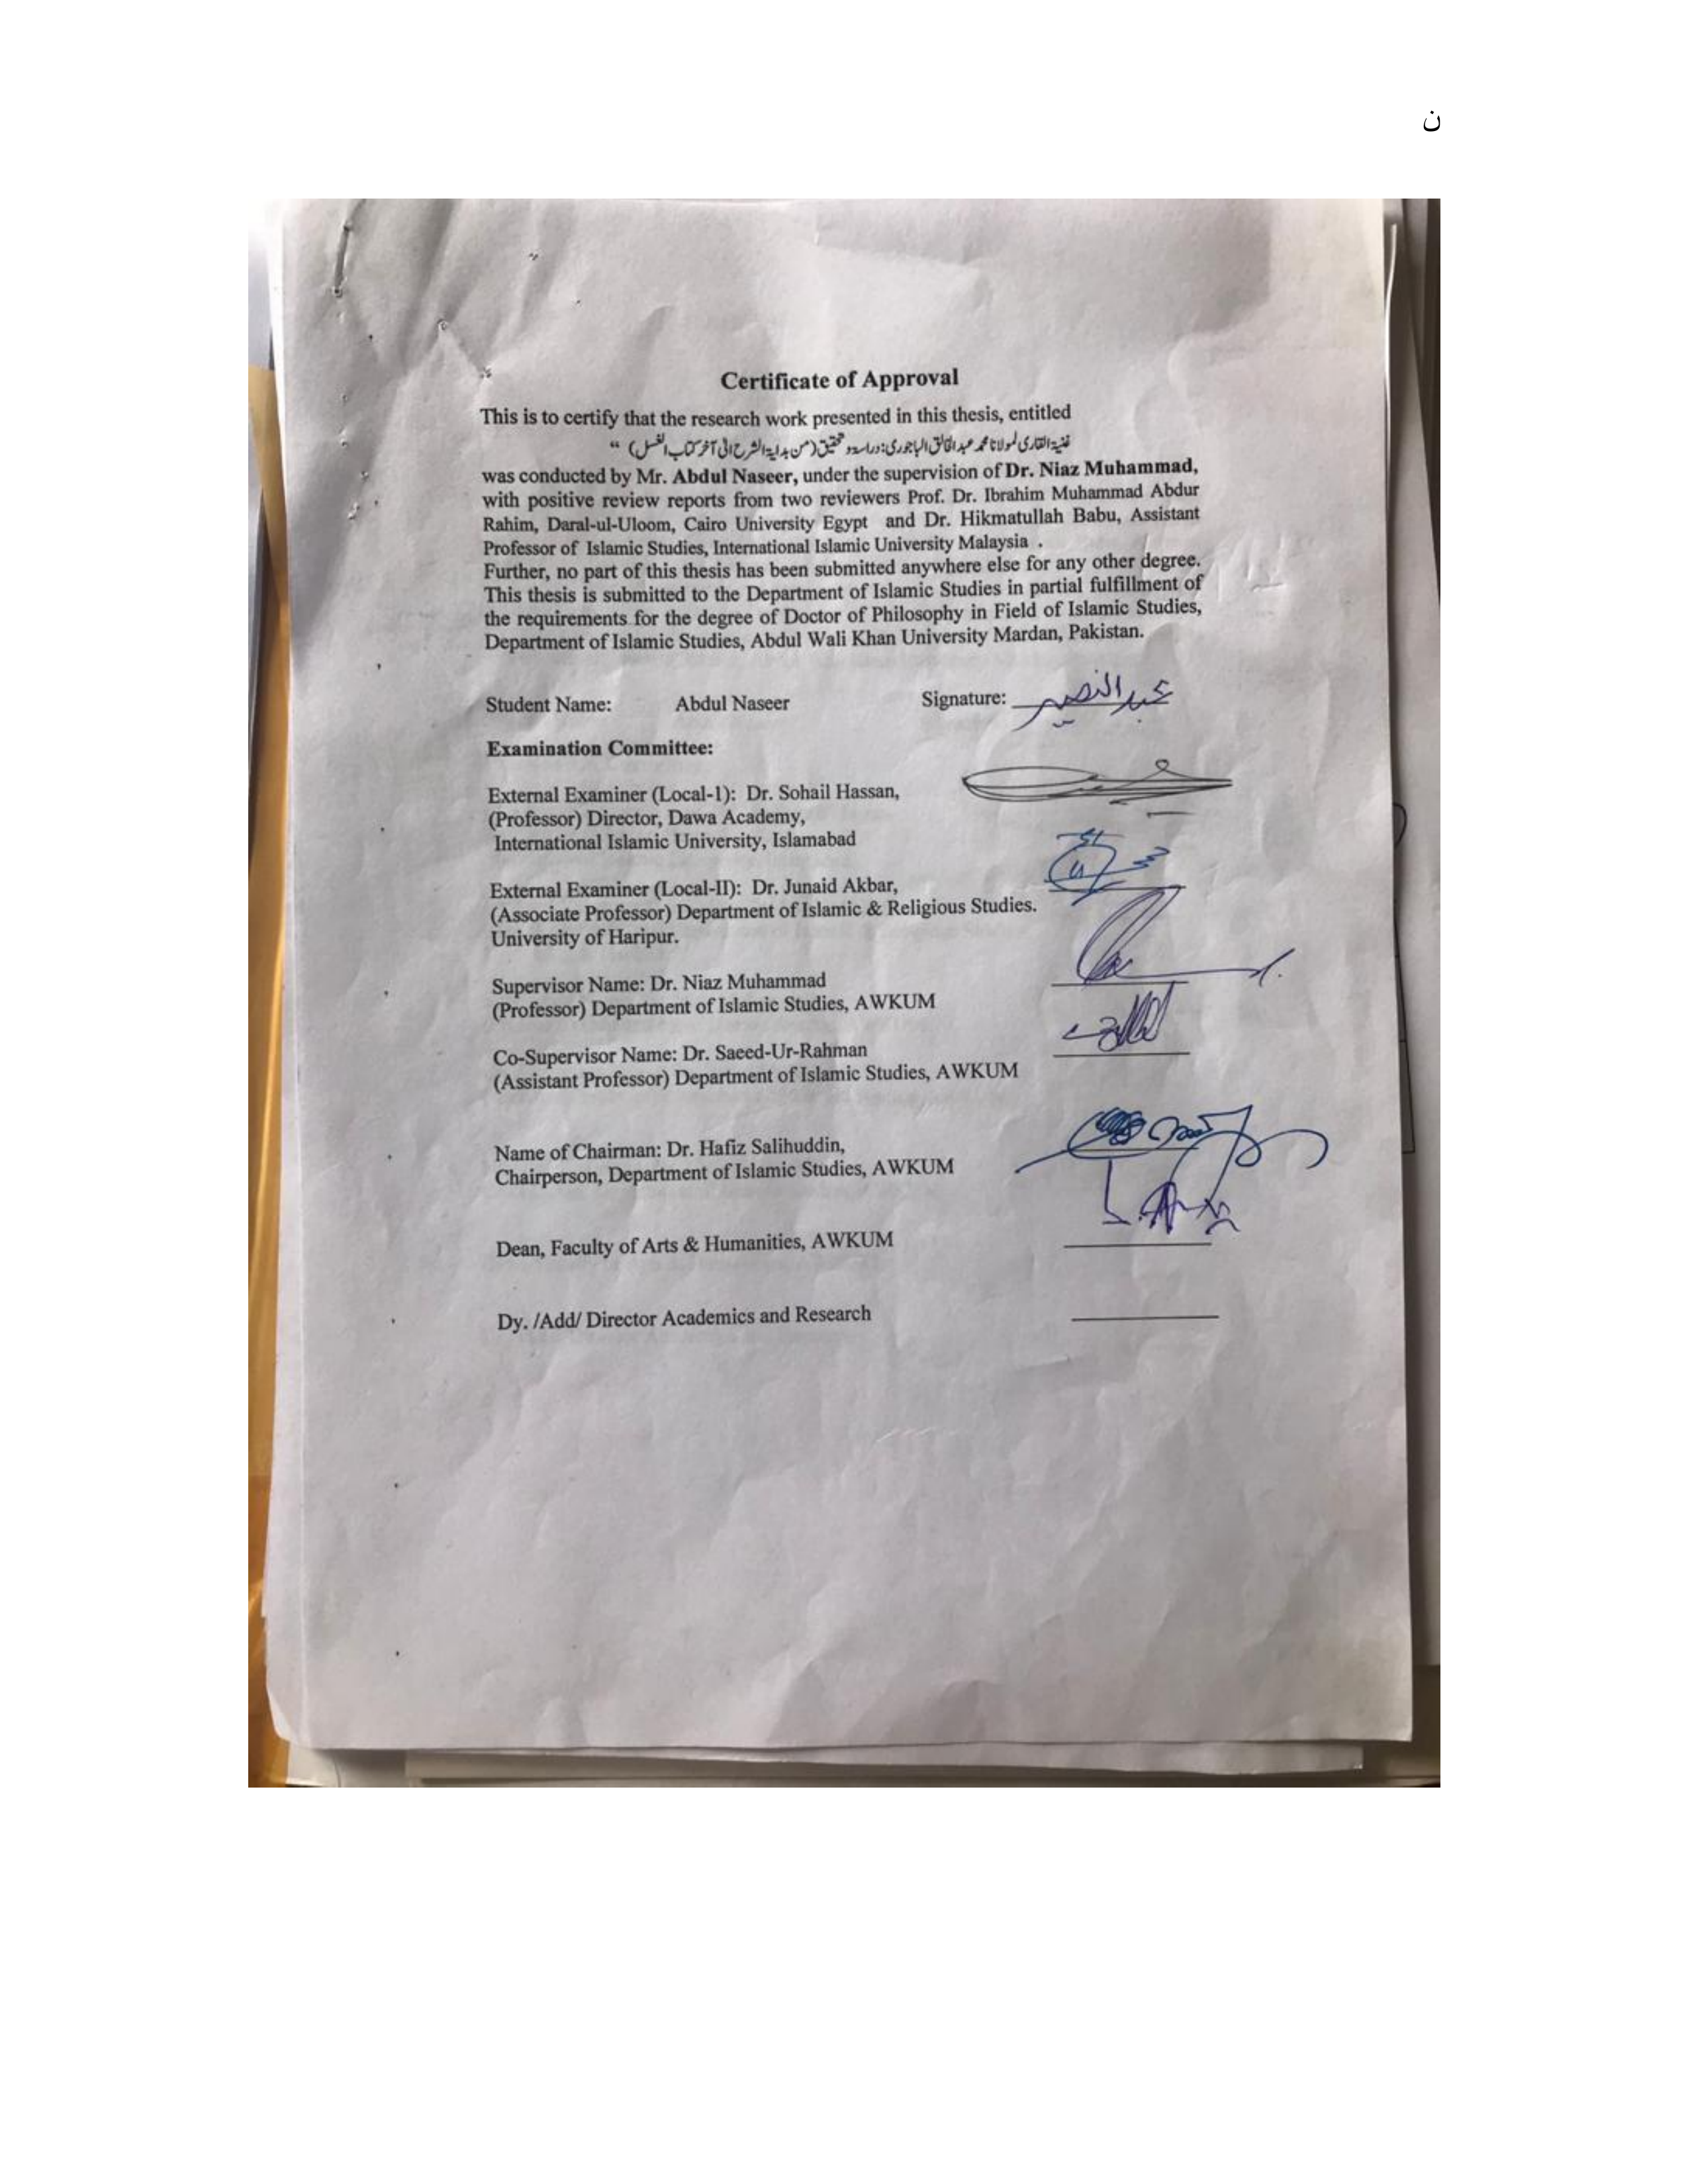 ن
Certificate of Approval
This is to certify that the research work presented in this thesis, entitled
غنیۃ القاری لمولانا محمد عبد الخالق الباجوری: دراسۃ و تحقیق (من بدایۃ الشرح الی آخر کتاب الغسل) “
was conducted by Mr. Abdul Naseer, under the supervision of Dr. Niaz Muhammad,
with positive review reports from two reviewers Prof. Dr. Ibrahim Muhammad Abdur
Rahim, Daral-ul-Uloom, Cairo University Egypt and Dr. Hikmatullah Babu, Assistant
Professor of Islamic Studies, International Islamic University Malaysia .
Further, no part of this thesis has been submitted anywhere else for any other degree.
This thesis is submitted to the Department of Islamic Studies in partial fulfillment of
the requirements for the degree of Doctor of Philosophy in Field of Islamic Studies,
Department of Islamic Studies, Abdul Wali Khan University Mardan, Pakistan.
Student Name: Abdul Naseer Signature: عبد النصیر
Examination Committee:
External Examiner (Local-1): Dr. Sohail Hassan,
(Professor) Director, Dawa Academy,
International Islamic University, Islamabad
External Examiner (Local-II): Dr. Junaid Akbar,
(Associate Professor) Department of Islamic & Religious Studies.
University of Haripur.
Supervisor Name: Dr. Niaz Muhammad
(Professor) Department of Islamic Studies, AWKUM
Co-Supervisor Name: Dr. Saeed-Ur-Rahman
(Assistant Professor) Department of Islamic Studies, AWKUM
Name of Chairman: Dr. Hafiz Salihuddin,
Chairperson, Department of Islamic Studies, AWKUM
Dean, Faculty of Arts & Humanities, AWKUM
Dy. /Add/ Director Academics and Research